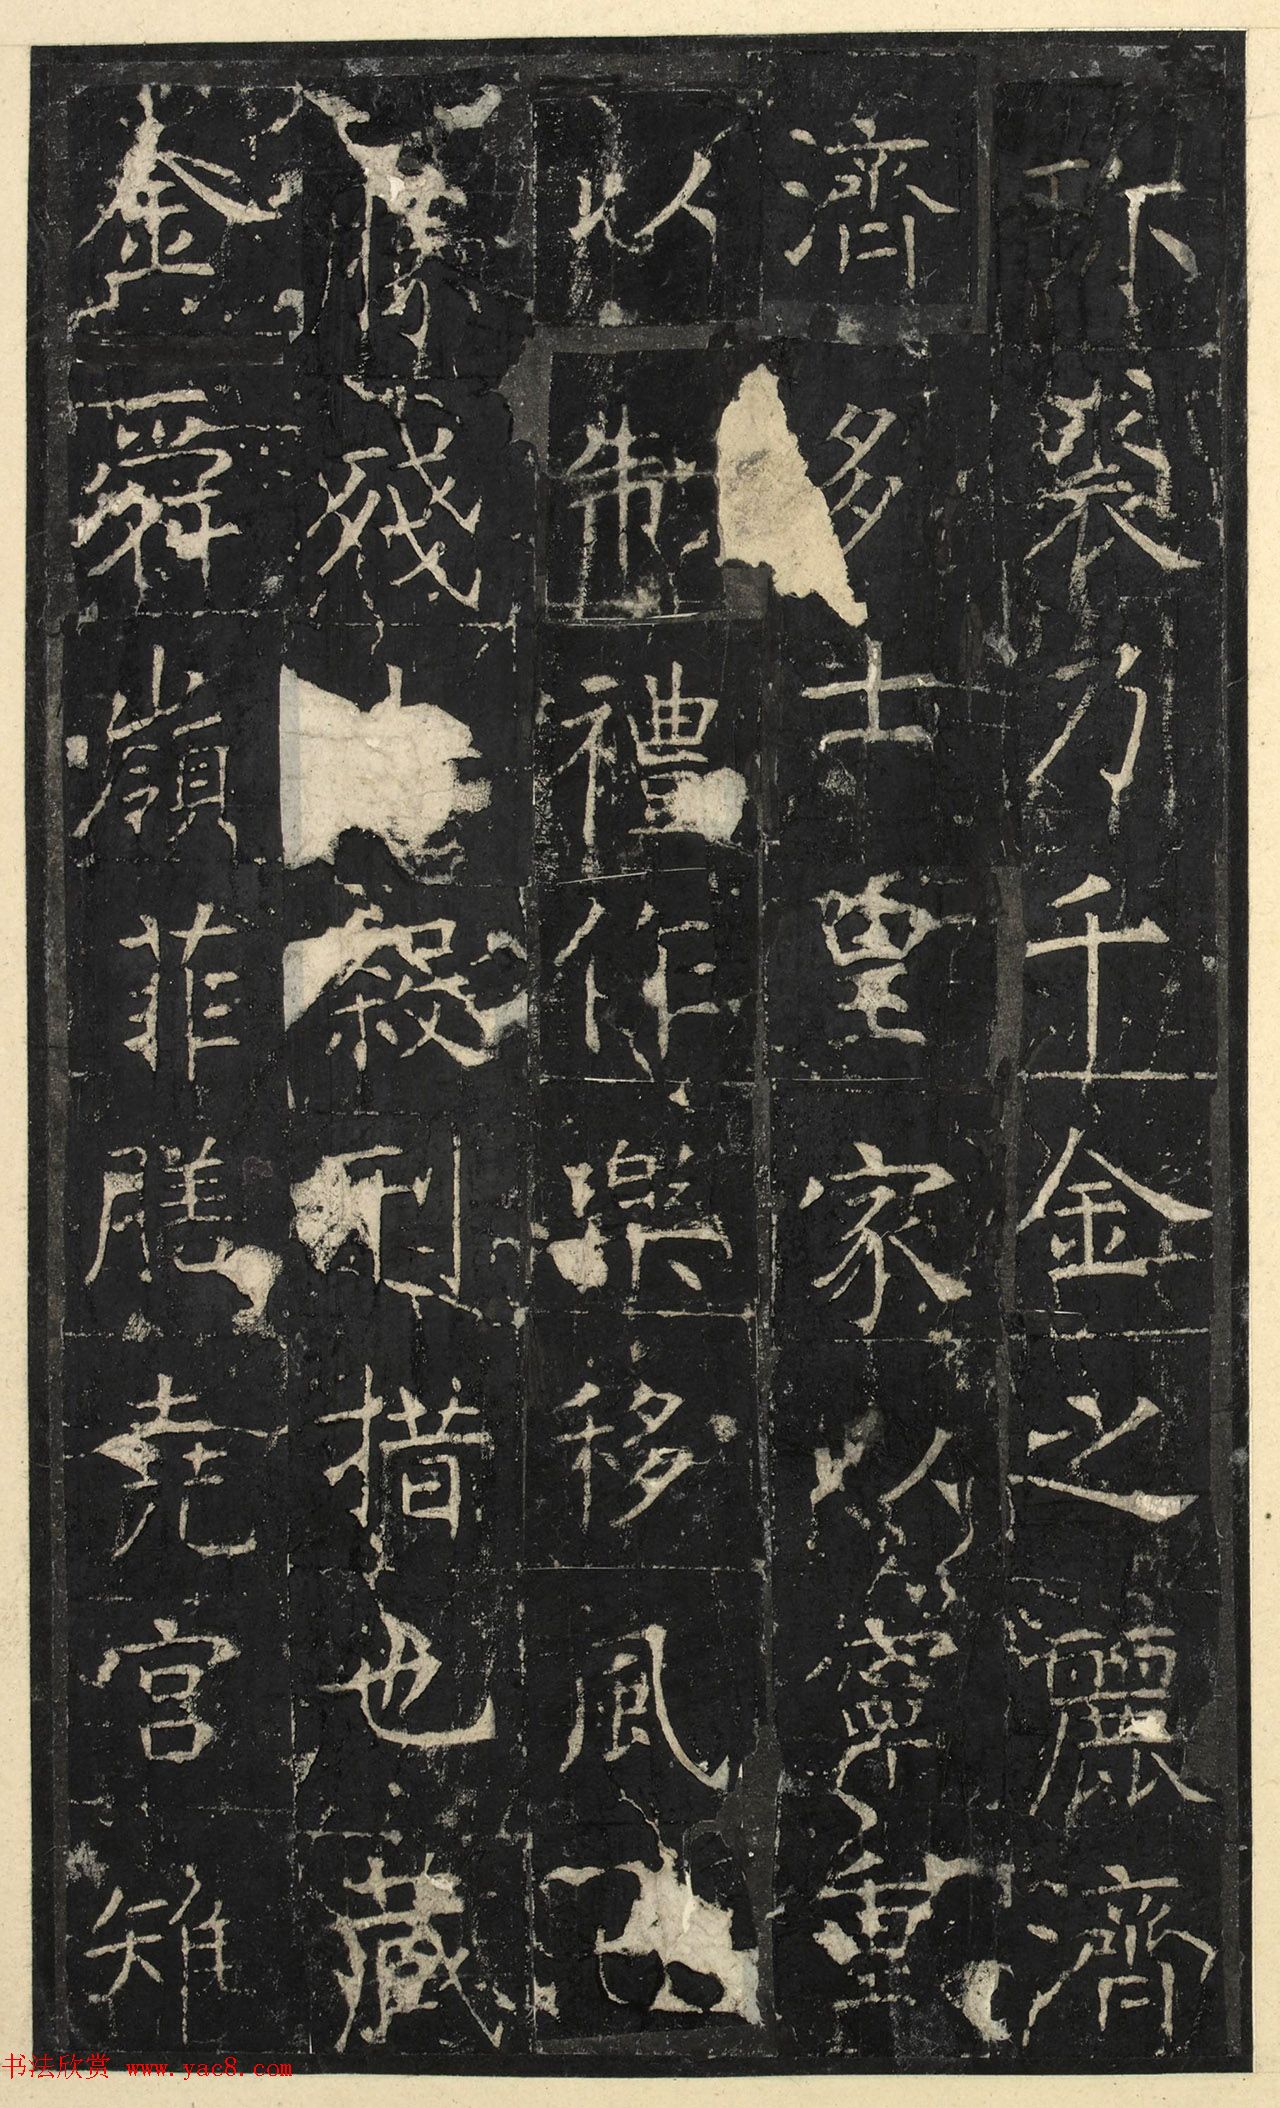 裘乃千金之麗濟
濟多士皇家以寧重
以制禮作樂移風
勝殘殺刑措也藏
金舜嶺菲膳堯宮雉
书法欣赏 www.yac8.com